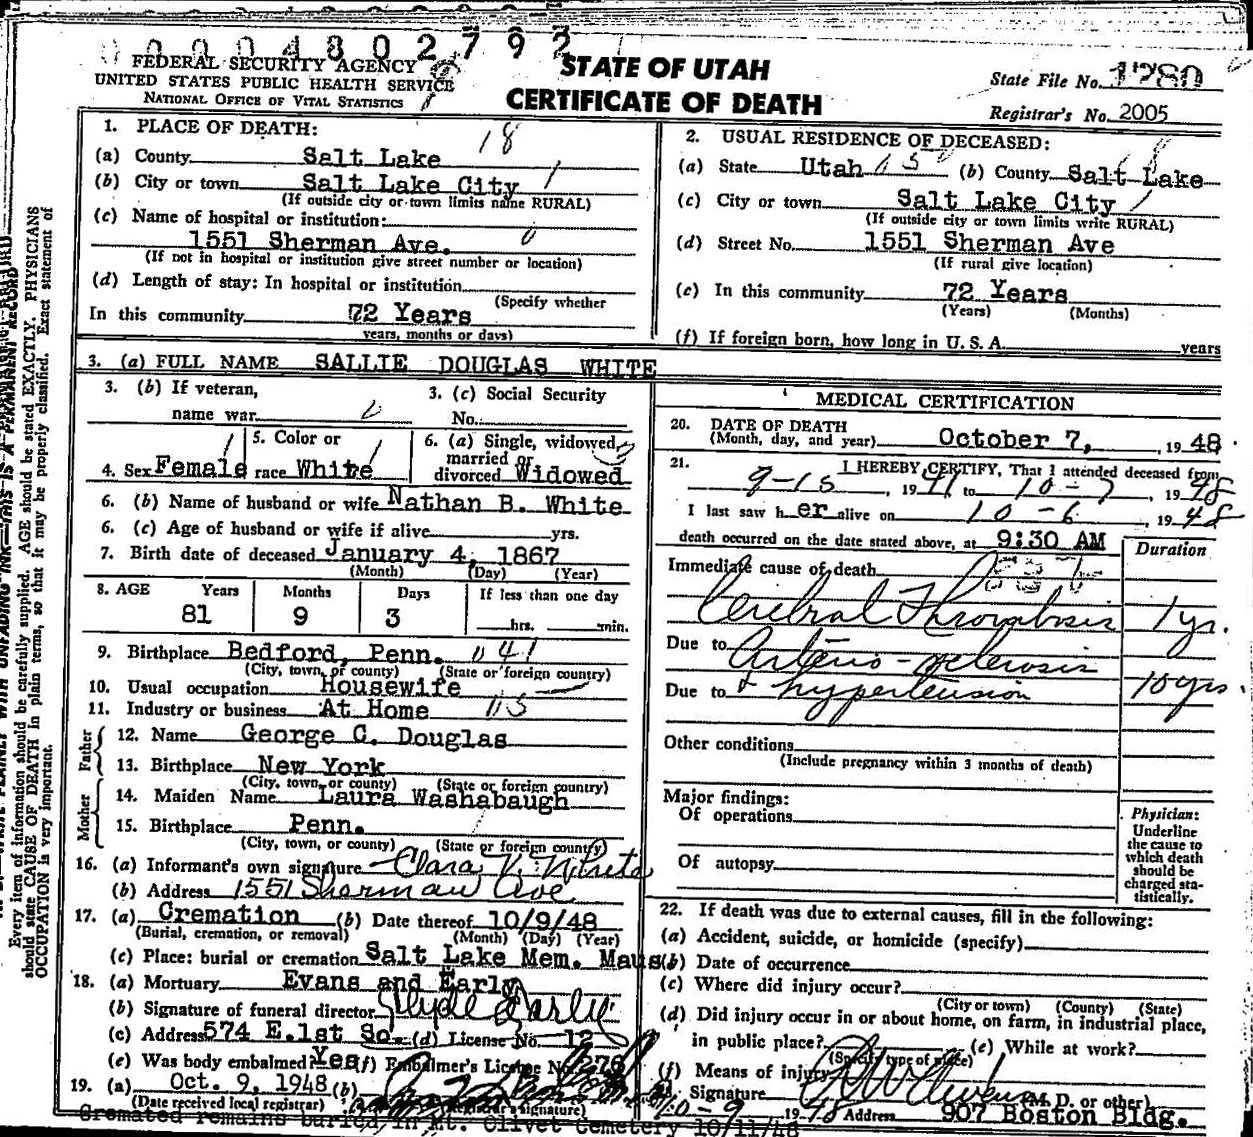 00004802792
FEDERAL SECURITY AGENCY
UNITED STATES PUBLIC HEALTH SERVICE
NATIONAL OFFICE OF VITAL STATISTICS
STATE OF UTAH
CERTIFICATE OF DEATH
State File No. 1780
Registrar's No. 2005
1. PLACE OF DEATH: 18
(a) County Salt Lake
(b) City or town Salt Lake City 1
(If outside city or town limits name RURAL)
(c) Name of hospital or institution:
1551 Sherman Ave. 0
(If not in hospital or institution give street number or location)
(d) Length of stay: In hospital or institution
(Specify whether
In this community 72 Years
years, months or days)
2. USUAL RESIDENCE OF DECEASED:
(a) State Utah (b) County Salt Lake
(c) City or town Salt Lake City 1
(If outside city or town limits write RURAL)
(d) Street No. 1551 Sherman Ave
(If rural give location)
(e) In this community 72 Years
(Years) (Months)
(f) If foreign born, how long in U. S. A. years
3. (a) FULL NAME SALLIE DOUGLAS WHITE
3. (b) If veteran,
name war
3. (c) Social Security
No.
4. Sex Female
5. Color or
race White
6. (a) Single, widowed,
married or
divorced Widowed
6. (b) Name of husband or wife Nathan B. White
6. (c) Age of husband or wife if alive yrs.
7. Birth date of deceased January 4, 1867
(Month) (Day) (Year)
8. AGE Years Months Days If less than one day
81 9 3 hrs. min.
9. Birthplace Bedford, Penn. 041
(City, town, or county) (State or foreign country)
10. Usual occupation Housewife
11. Industry or business At Home
Father
12. Name George C. Douglas
13. Birthplace New York
(City, town, or county) (State or foreign country)
Mother
14. Maiden Name Laura Washabaugh
15. Birthplace Penn.
(City, town, or county) (State or foreign country)
16. (a) Informant's own signature Clara V. White
(b) Address 1551 Sherman Ave
17. (a) Cremation (b) Date thereof 10/9/48
(Burial, cremation, or removal) (Month) (Day) (Year)
(c) Place: burial or cremation Salt Lake Mem. Maus
18. (a) Mortuary Evans and Early
(b) Signature of funeral director Clyde Early
(c) Address 574 E.1st So. (d) License No. 12
(e) Was body embalmed? Yes (f) Embalmer's License No. 276
19. (a) Oct. 9, 1948 (b)
(Date received local registrar) (Registrar's signature)
Cremated remains buried in Mt. Olivet Cemetery 10/11/48
MEDICAL CERTIFICATION
20. DATE OF DEATH
(Month, day, and year) October 7, 1948
21. I HEREBY CERTIFY, That I attended deceased from
9-15, 1941 to 10-7, 1948
I last saw her alive on 10-6, 1948
death occurred on the date stated above, at 9:30 AM
Duration
Immediate cause of death
Cerebral Thrombosis 1 yr.
Due to Arterio-sclerosis
Due to & hypertension 10 yrs.
Other conditions
(Include pregnancy within 3 months of death)
Major findings:
Of operations
Of autopsy
Physician:
Underline
the cause to
which death
should be
charged sta-
tistically.
22. If death was due to external causes, fill in the following:
(a) Accident, suicide, or homicide (specify)
(b) Date of occurrence
(c) Where did injury occur?
(City or town) (County) (State)
(d) Did injury occur in or about home, on farm, in industrial place,
in public place? (e) While at work?
(Specify type of place)
(f) Means of injury
Signature (M. D. or other)
10-9 1948 Address 907 Boston Bldg.
WRITE PLAINLY WITH UNFADING INK—THIS IS A PERMANENT RECORD
Every item of information should be carefully supplied. AGE should be stated EXACTLY. PHYSICIANS
should state CAUSE OF DEATH in plain terms, so that it may be properly classified. Exact statement of
OCCUPATION is very important.